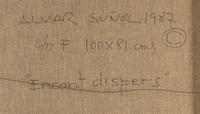 ALVAR SUÑOL 1987
40.F 100X81 cms ©
"Encant dispers"